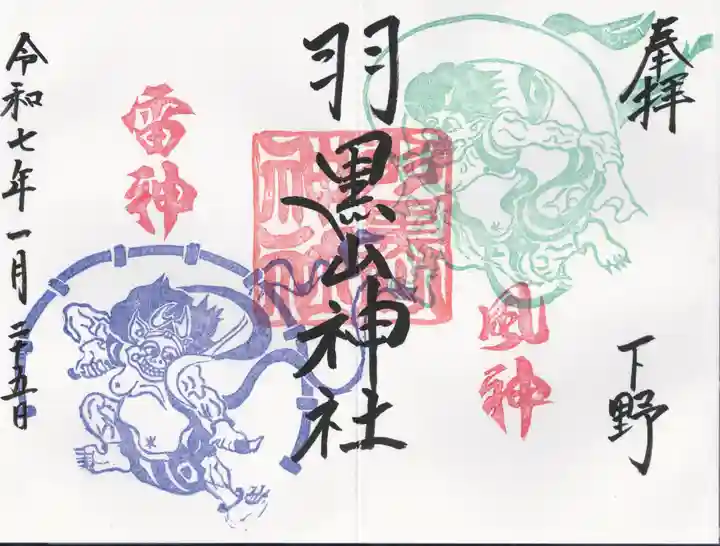 奉拝
下野
風神
羽黒山神社
雷神
令和七年一月二十五日